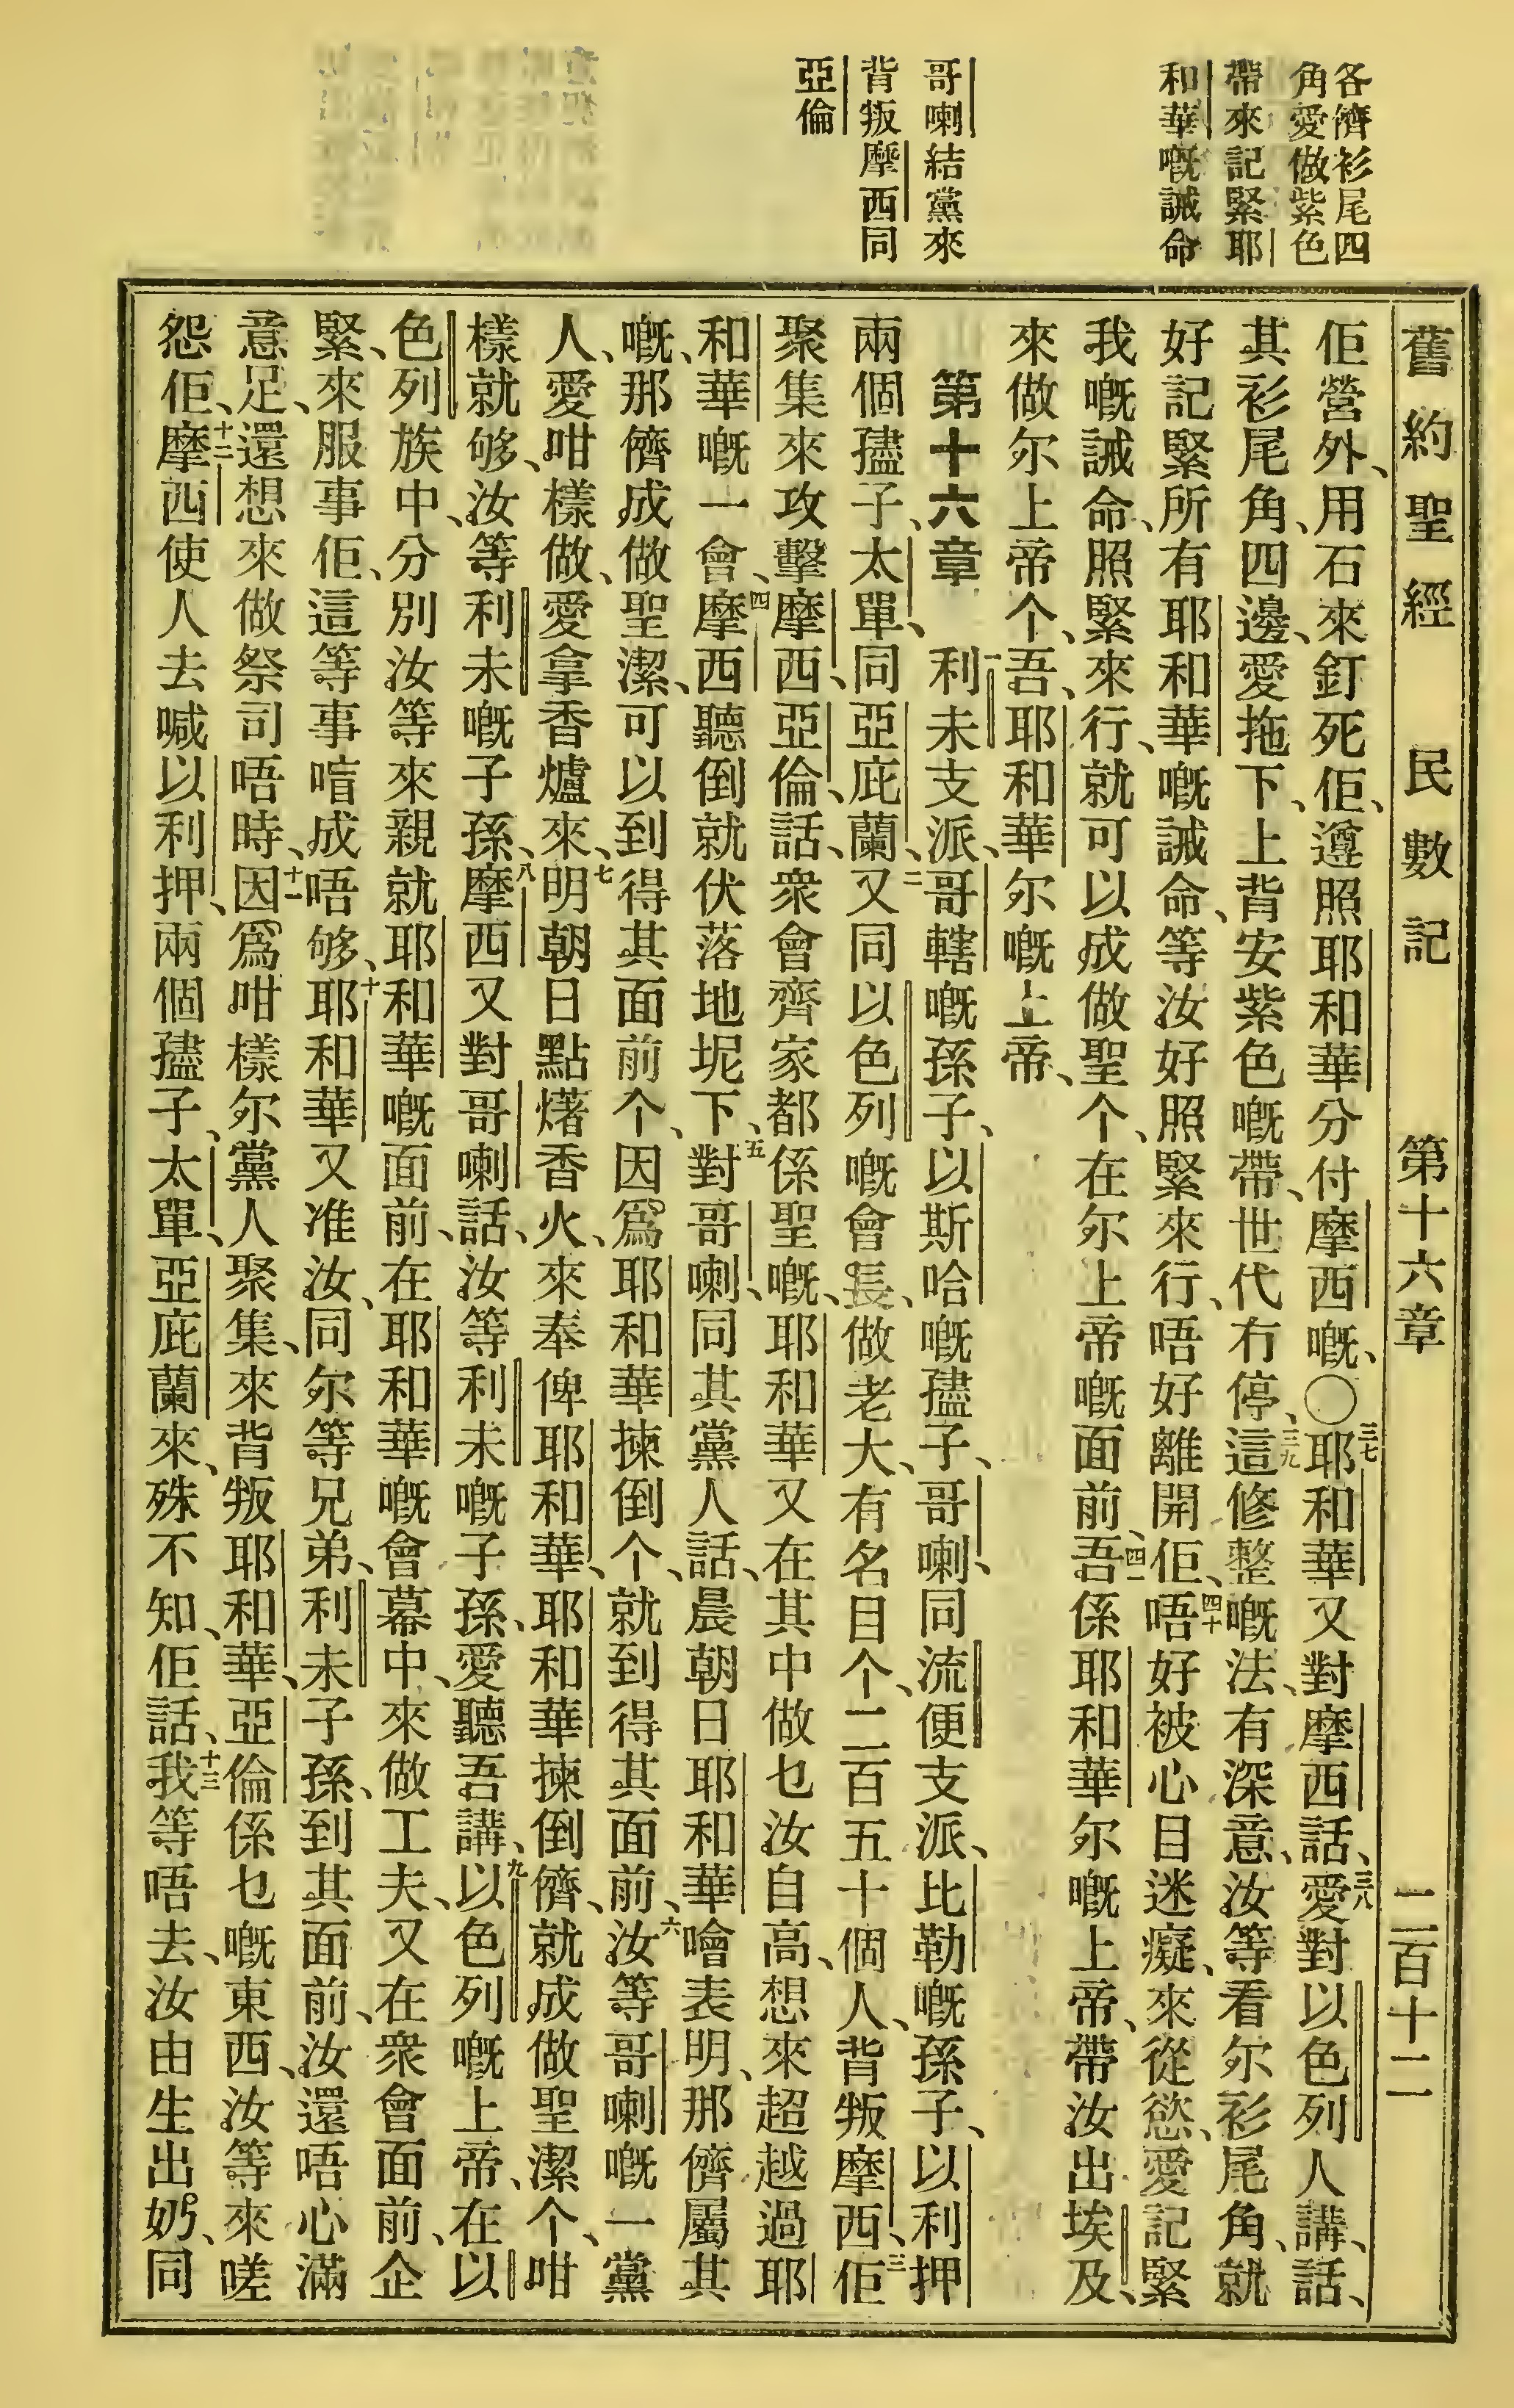 各儕衫尾四
角愛做紫色
帶來記緊耶
和華嘅誡命
哥喇結黨來
背叛摩西同
亞倫
舊約聖經 民數記 第十六章 二百十二
佢營外、用石來釘死佢、遵照耶和華分付摩西嘅、〇三七耶和華又對摩西話、三八愛對以色列人講、話、
其衫尾角、四邊、愛拖下、上背安紫色嘅帶、世代冇停、三九這修整嘅法、有深意、汝等看尔衫尾角、就
好記緊所有耶和華嘅誡命、等汝好照緊來行、唔好離開佢、四十唔好被心目迷癡、來從慾、愛記緊
我嘅誡命、照緊來行、就可以成做聖个、在尔上帝嘅面前、四一吾係耶和華尔嘅上帝、帶汝出埃及、
來做尔上帝个、吾、耶和華尔嘅上帝、
第十六章 一利未支派、哥轄嘅孫子、以斯哈嘅孻子、哥喇、同流便支派、比勒嘅孫子、以利押
兩個孻子、太單、同亞庇蘭、二又同以色列嘅會長、做老大、有名目个、二百五十個人、背叛摩西、三佢
聚集來攻擊摩西、亞倫、話、衆會齊家都係聖嘅、耶和華又在其中做乜汝自高、想來超越過耶
和華嘅一會、四摩西聽倒就伏落地坭下、五對哥喇、同其黨人話、晨朝日耶和華噲表明、那儕屬其
嘅、那儕成做聖潔、可以到得其面前个、因爲耶和華揀倒个、就到得其面前、六汝等哥喇嘅一黨
人、愛咁樣做、愛拿香爐來、七明朝日點㸃香火、來奉俾耶和華、耶和華揀倒儕、就成做聖潔个、咁
樣就够、汝等利未嘅子孫、八摩西又對哥喇話、汝等利未嘅子孫、愛聽吾講、九以色列嘅上帝、在以
色列族中、分別汝等來親就耶和華嘅面前、在耶和華嘅會幕中、來做工夫、又在衆會面前、企
緊、來服事佢、這等事唁成唔够、十耶和華又准汝、同尔等兄弟、利未子孫、到其面前、汝還唔心滿
意足、還想來做祭司唔時、十一因爲咁樣尔黨人聚集、來背叛耶和華、亞倫係乜嘅東西、汝等來嗟
怨佢、十二摩西使人去喊以利押、兩個孻子、太單、亞庇蘭來、殊不知、佢話、十三我等唔去、汝由生出奶、同